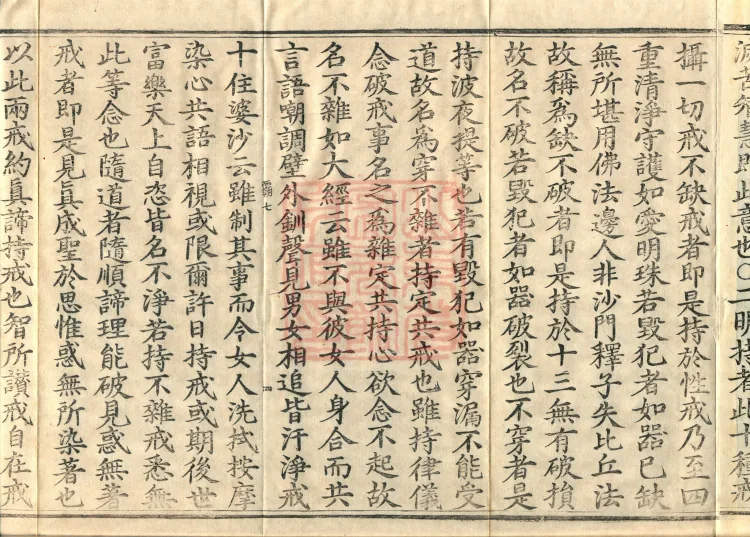 滅苦分慧即此意也〇二明持者此十種戒
攝一切戒不缺戒者即是持於性戒乃至四
重清淨守護如愛明珠若毀犯者如器已缺
無所堪用佛法邊人非沙門釋子失比丘法
故稱為缺不破者即是持於十三無有破損
故名不破若毀犯者如器破裂也不穿者是
持波夜提等也若有毀犯如器穿漏不能受
道故名為穿不雜者持定共戒也雖持律儀
念破戒事名之為雜定共持心欲念不起故
名不雜如大經云雖不與彼女人身合而共
言語嘲調壁外釧聲見男女相追皆汙淨戒
霸七
四
十住婆沙云雖制其事而令女人洗拭按摩
染心共語相視或限爾許日持戒或期後世
富樂天上自恣皆名不淨若持不雜戒悉無
此等念也隨道者隨順諦理能破見惑無著
戒者即是見真成聖於思惟惑無所染著也
以此兩戒約真諦持戒也智所讚戒自在戒